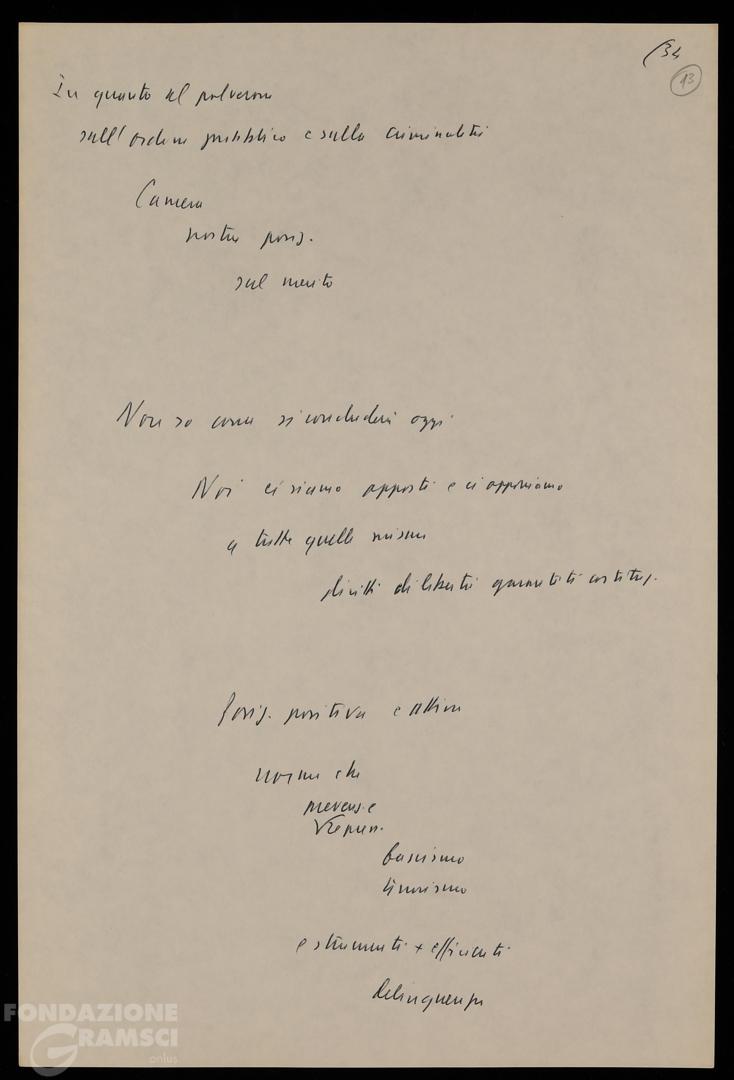 (34
13
In quanto al polverone
sull'ordine pubblico e sulla criminalità
Camera
nostra posiz.
sul merito
Non so come si concluderà oggi
Noi ci siamo opposti e ci opponiamo
a tutte quelle misure
diritti di libertà garantiti costituz.
Posiz. positiva e attiva
norme che
prevenz. e
repress.
fascismo
terrorismo
e strumenti + efficienti
delinquenza
FONDAZIONE
GRAMSCI
onlus